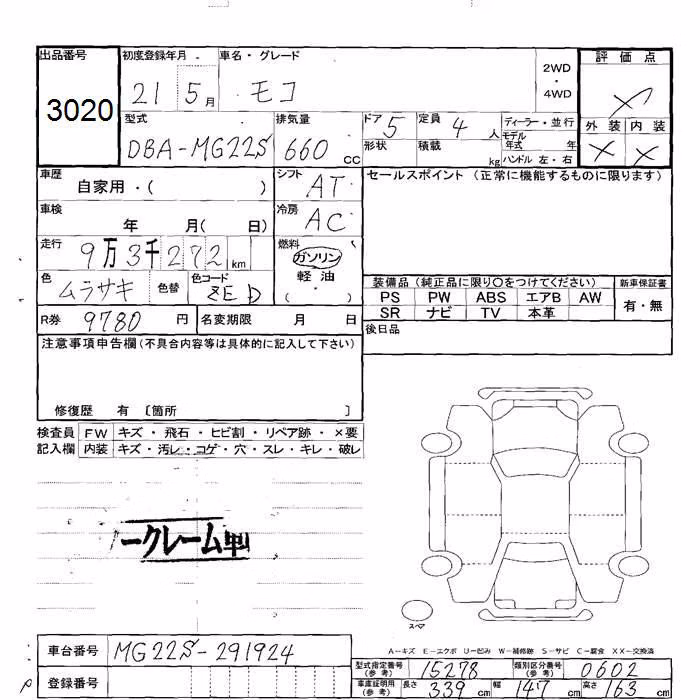 出品番号 初度登録年月 車名・グレード 2WD・4WD 評価点
3020 21 5月 モコ
型式 排気量 ドア 5 定員 4人 ディーラー・並行 外装 内装
DBA-MG22S 660cc 形状 積載 kg モデル年式 年 ハンドル 左・右 × ×
車歴 自家用・( ) シフト AT セールスポイント(正常に機能するものに限ります)
車検 年 月( 日) 冷房 AC
走行 9万3千272km 燃料 ガソリン 軽油・( )
色 ムラサキ 色替 色コード 装備品(純正品に限り〇をつけてください) 新車保証書
PS PW ABS エアB AW 有・無
SR ナビ TV 本革
R券 9780円 名変期限 月 日 後日品
注意事項申告欄(不具合内容等は具体的に記入して下さい)
修復歴 有 〔箇所 〕
検査員 FW キズ・飛石・ヒビ割・リペア跡・×要
記入欄 内装 キズ・汚レ・コゲ・穴・スレ・キレ・破レ
ークレーム申
スペア
A-キズ E-エクボ U-凹み W-補修跡 S-サビ C-腐食 XX-交換済
車台番号 MG22S-291924 型式指定番号(参考) 15278 類別区分番号(参考) 0602
登録番号 車庫証明用(参考) 長さ 339cm 幅 147cm 高さ 163cm